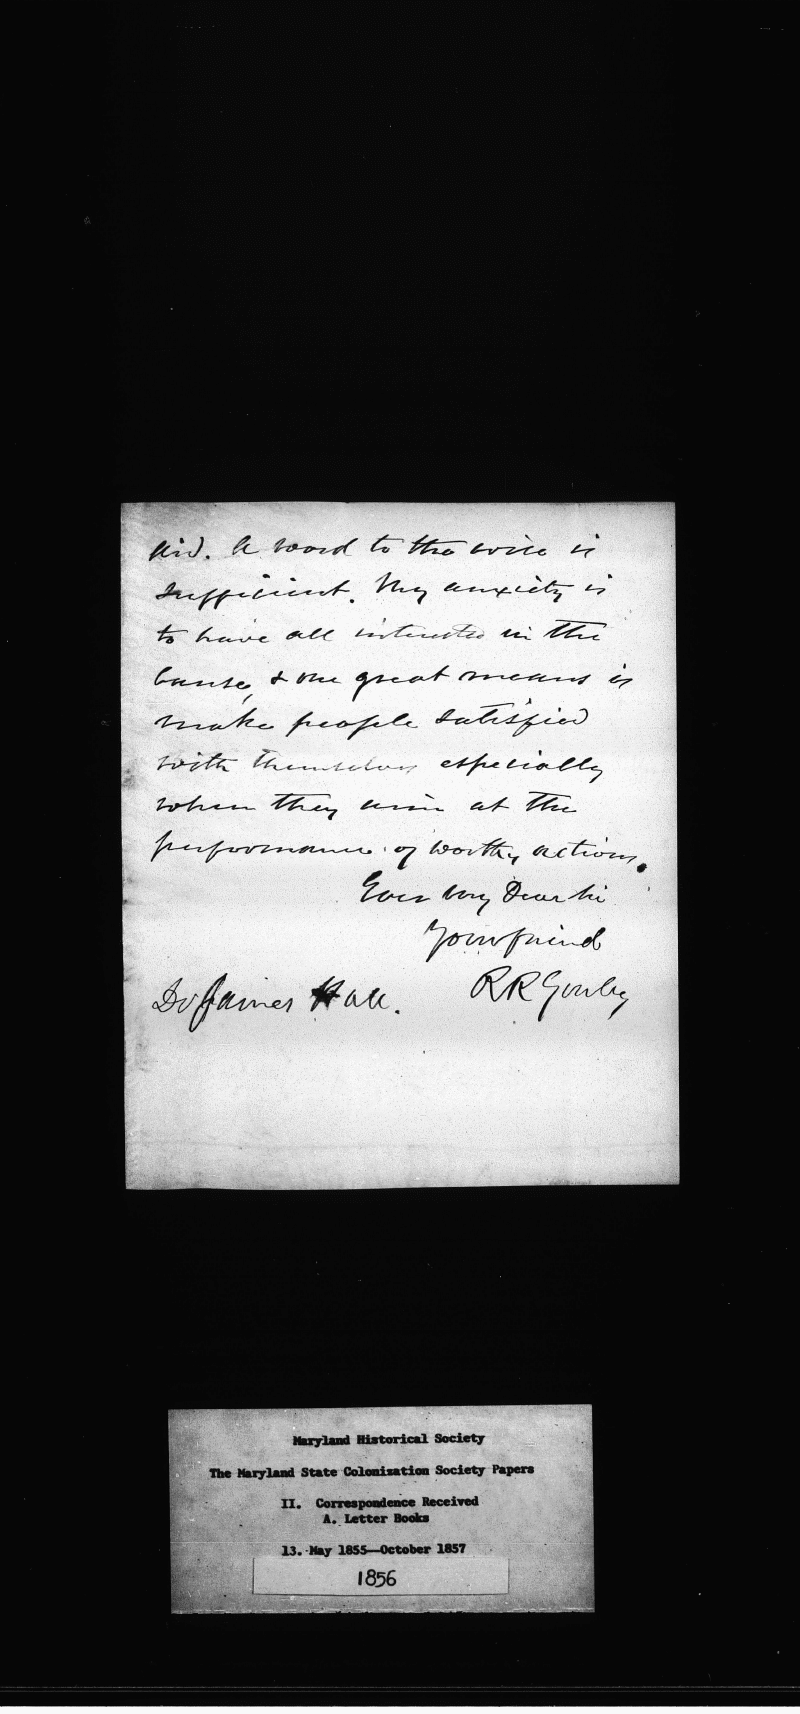 aid. A word to the wise is
sufficient. My anxiety is
to have all interested in the
cause, & one great means is
make people satisfied
with themselves especially
when they aim at the
performance of worthy actions.
Ever my Dear Sir
Your friend
R R Gurley
Dr James Hall.
Maryland Historical Society
The Maryland State Colonization Society Papers
II. Correspondence Received
A. Letter Books
13. May 1855—October 1857
1856